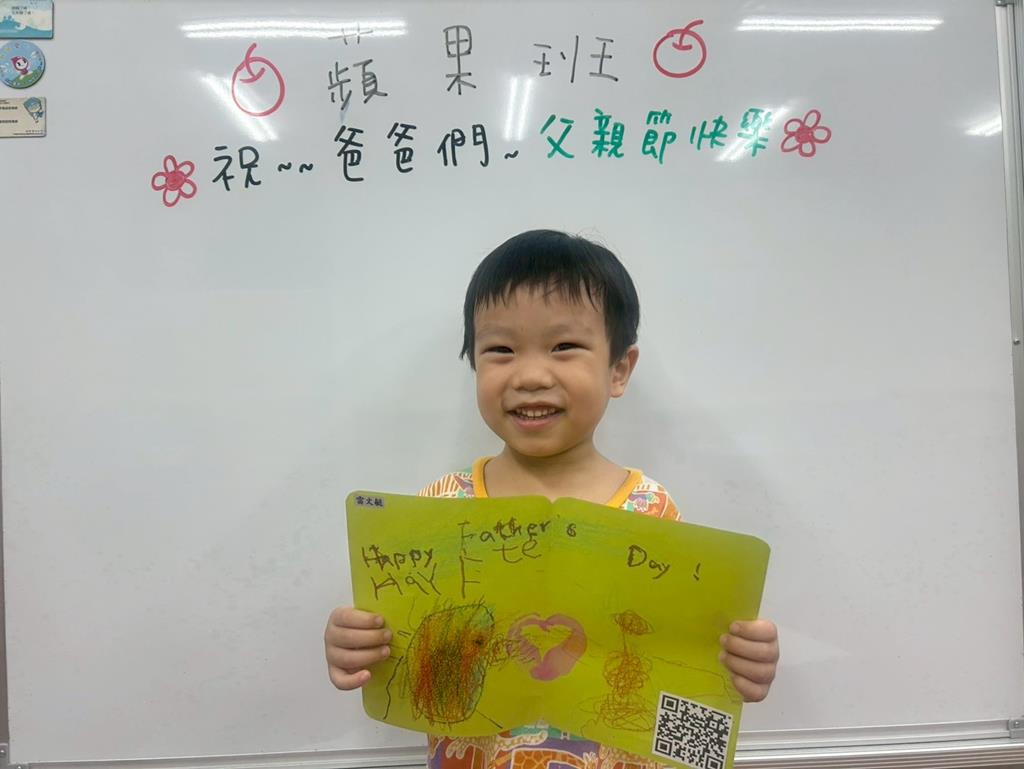 蘋果班
祝~~爸爸們~父親節快樂
雷文毓
Happy Father's Day!